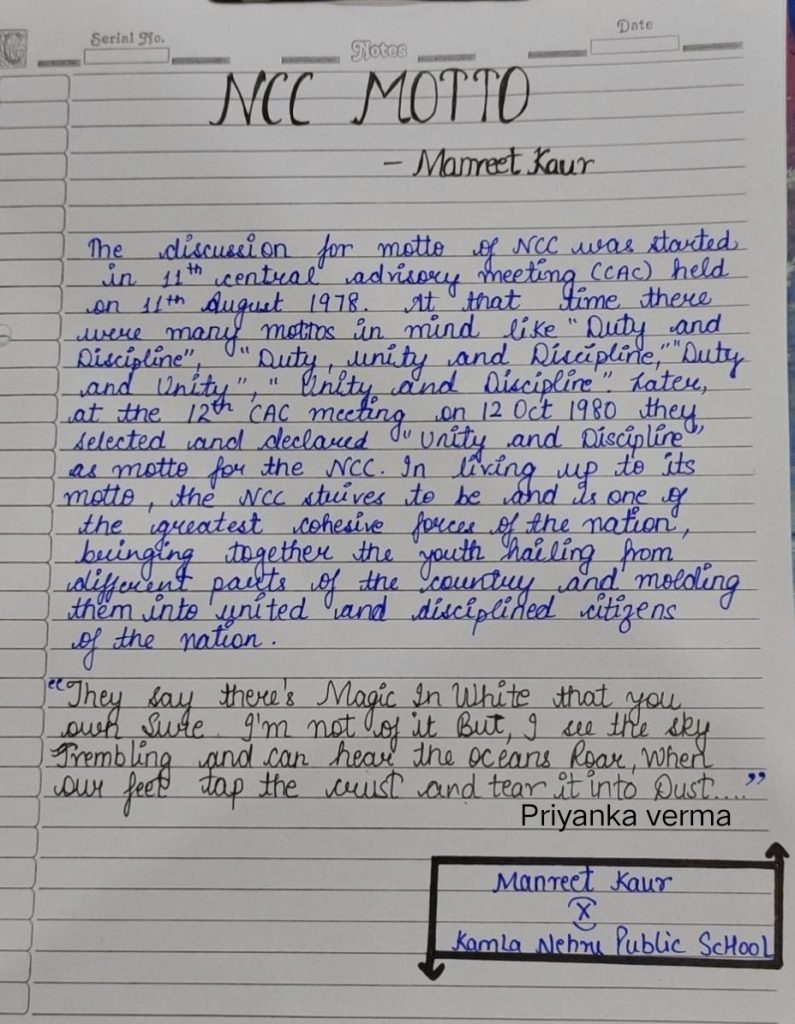 Serial No.
Notes
Date
NCC MOTTO
- Manreet Kaur
The discussion for motto of NCC was started
in 11th central advisory meeting (CAC) held
on 11th August 1978. At that time there
were many mottos in mind like "Duty and
Discipline", "Duty, unity and Discipline," "Duty
and Unity", "Unity and Discipline". Later,
at the 12th CAC meeting on 12 Oct 1980 they
selected and declared "Unity and Discipline"
as motto for the NCC. In living up to its
motto, the NCC strives to be and is one of
the greatest cohesive forces of the nation,
bringing together the youth hailing from
different parts of the country and molding
them into united and disciplined citizens
of the nation.
"They say there's Magic In White that you
own Sure. I'm not of it But, I see the sky
Trembling and can hear the oceans Roar, When
our feet tap the crust and tear it into Dust...."
Priyanka verma
Manreet Kaur
X
Kamla Nehru Public ScHool